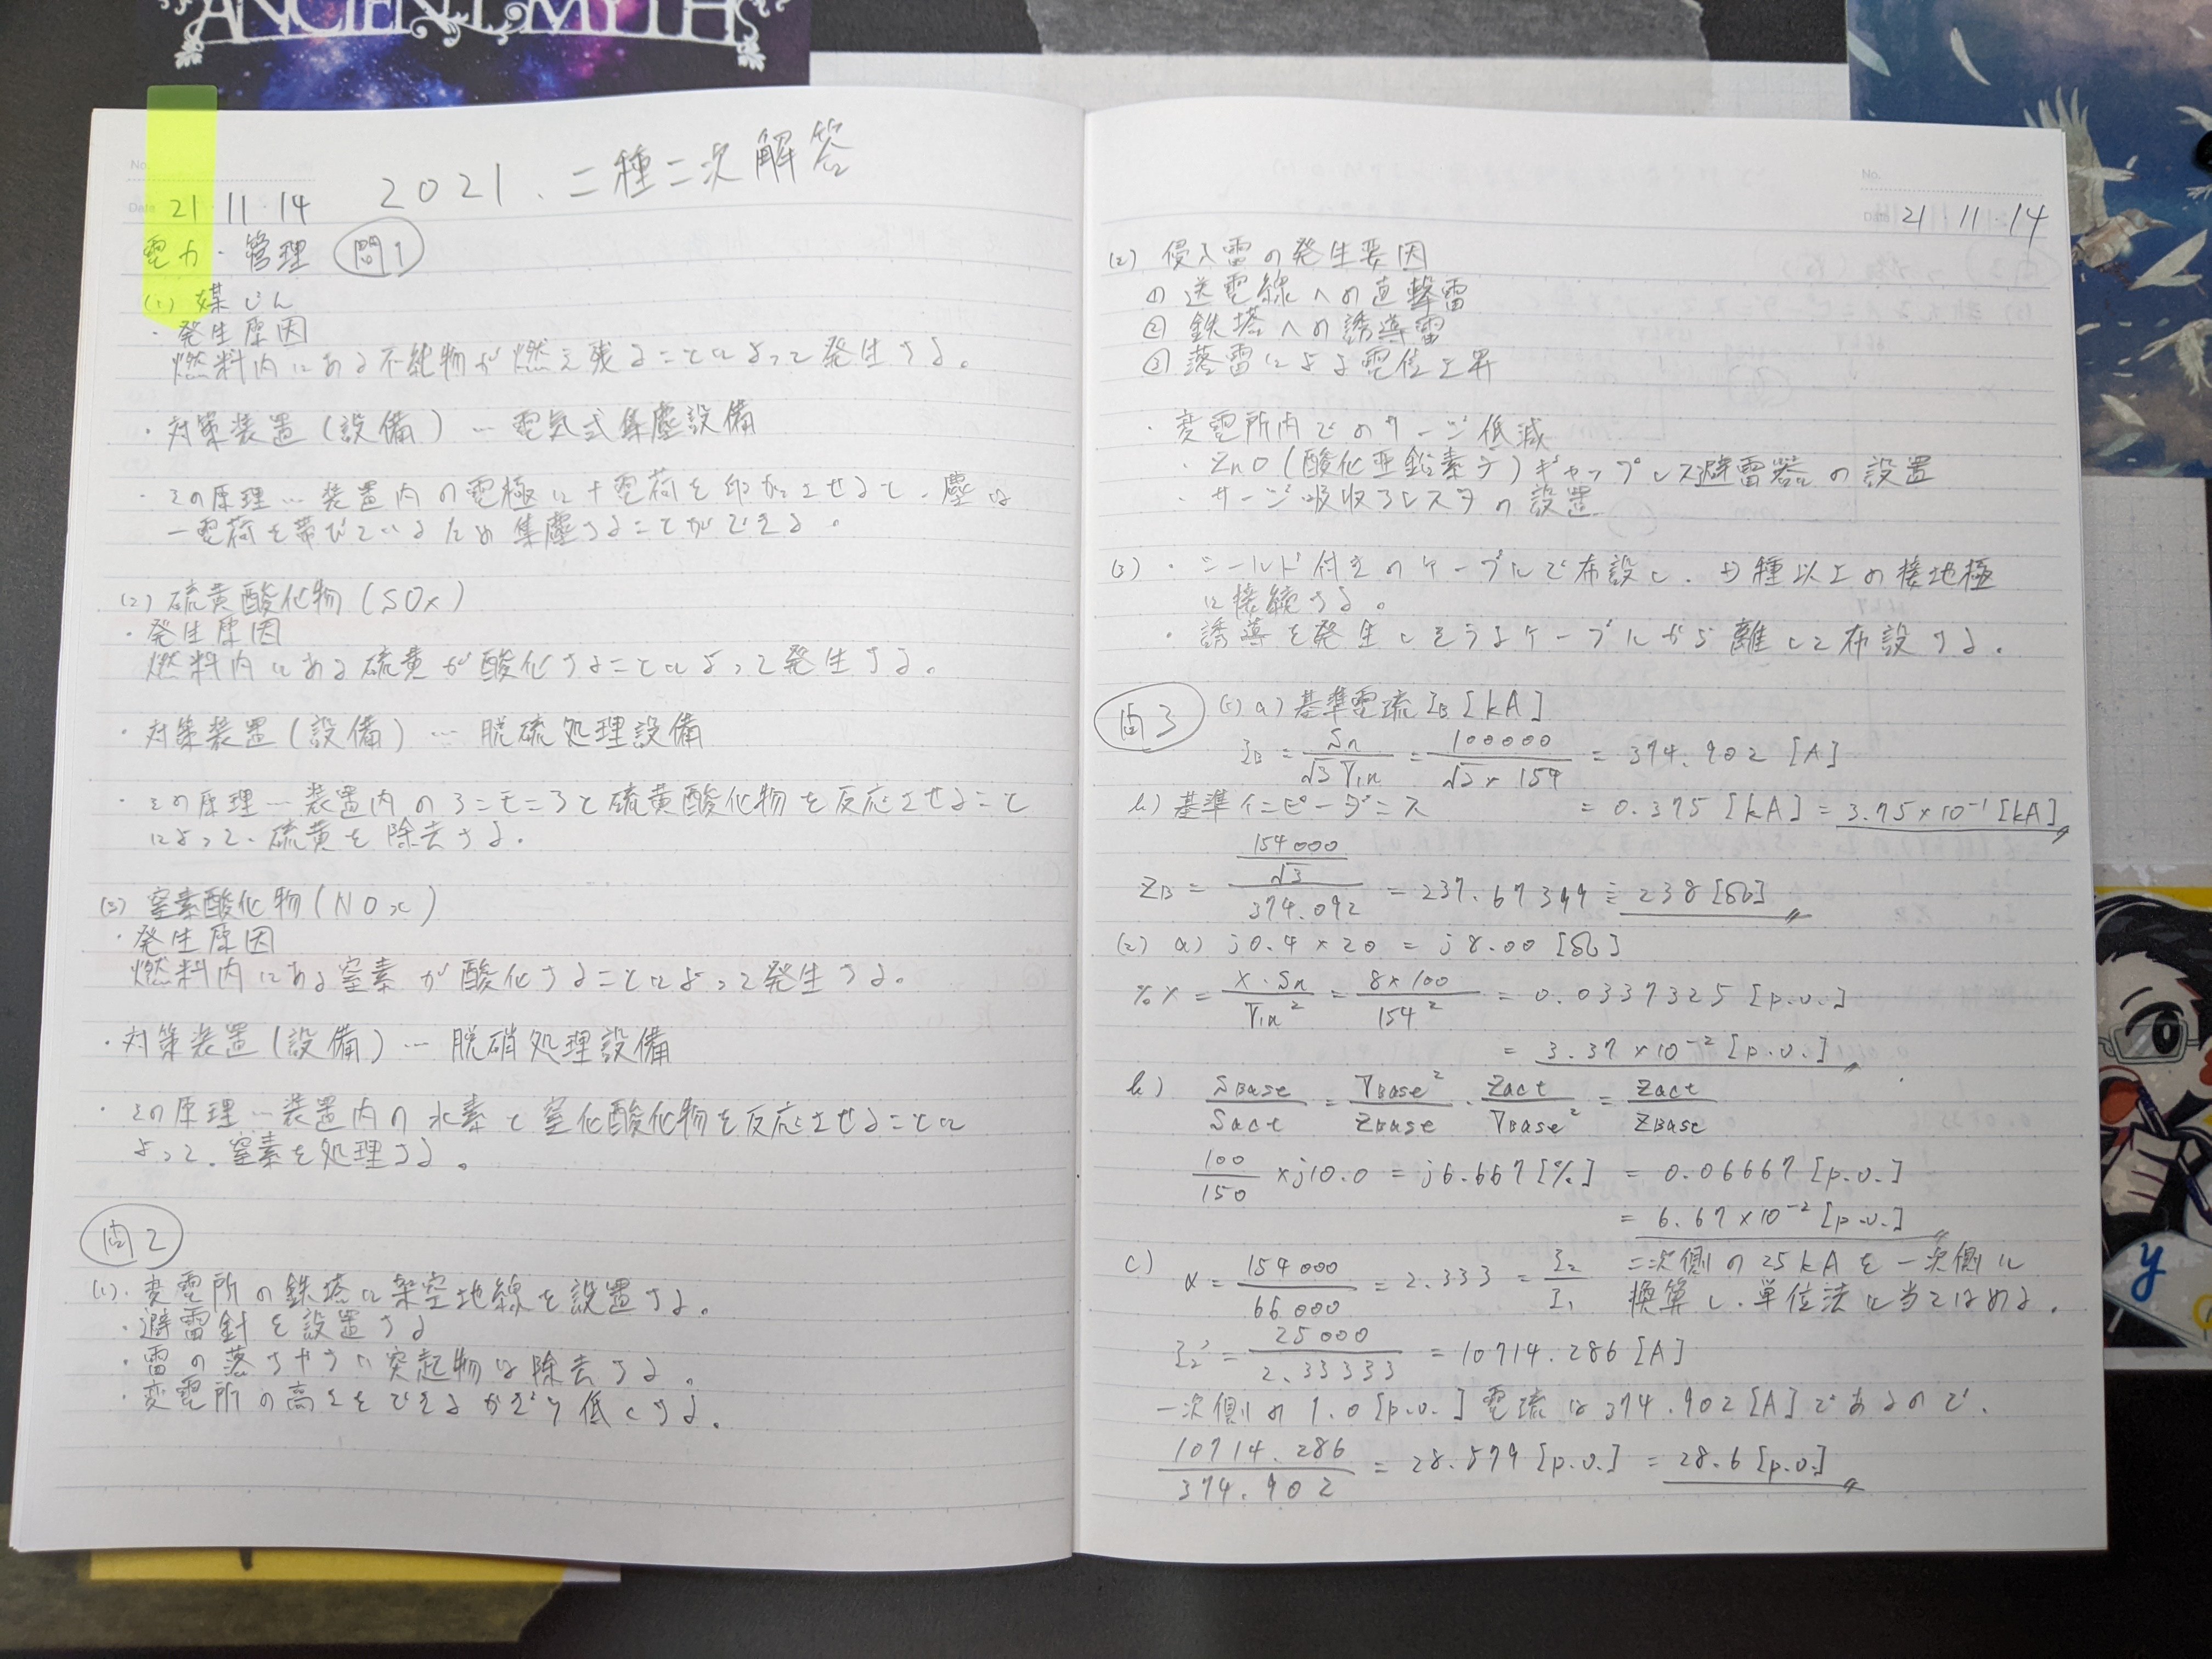 ANCIENT MYTH
No.
Date 21・11・14
2021.二種二次解答
電力・管理 問1
(1) 媒じん
・発生原因
燃料内にある不純物が燃え残ることによって発生する。
・対策装置(設備)…電気式集塵設備
・その原理…装置内の電極に+電荷を印加させると、塵は
-電荷を帯びているため集塵することができる。
(2) 硫黄酸化物(SOx)
・発生原因
燃料内にある硫黄が酸化することによって発生する。
・対策装置(設備)…脱硫処理設備
・その原理…装置内のアンモニアと硫黄酸化物を反応させること
によって、硫黄を除去する。
(3) 窒素酸化物(NOx)
・発生原因
燃料内にある窒素が酸化することによって発生する。
・対策装置(設備)…脱硝処理設備
・その原理…装置内の水素と窒化酸化物を反応させることに
よって、窒素を処理する。
問2
(1)・変電所の鉄塔に架空地線を設置する。
・避雷針を設置する
・雷の落ちやすい突起物は除去する。
・変電所の高さをできるかぎり低くする。
No.
Date 21・11・14
(2) 侵入雷の発生要因
① 送電線への直撃雷
② 鉄塔への誘導雷
③ 落雷による電位上昇
・変電所内でのサージ低減
・ZnO(酸化亜鉛素子)ギャップレス避雷器の設置
・サージ吸収アレスタの設置
(3)・シールド付きのケーブルで布設し、D種以上の接地極
に接続する。
・誘導を発生しそうなケーブルから離して布設する。
問3 (1) a) 基準電流 IB [kA]
IB = Sn/√3 V1n = 100000/√3×154 = 374.902 [A]
b) 基準インピーダンス = 0.375 [kA] = 3.75×10⁻¹ [kA]
ZB = (154000/√3)/374.092 = 237.67349 ≒ 238 [Ω]
(2) a) j0.4×20 = j8.00 [Ω]
%X = X・Sn/V1n² = 8×100/154² = 0.0337325 [p.u.]
= 3.37×10⁻² [p.u.]
b) SBase/Sact = VBase²/ZBase・Zact/VBase² = Zact/ZBase
100/150 ×j10.0 = j6.667 [%] = 0.06667 [p.u.]
= 6.67×10⁻² [p.u.]
c) α = 154000/66000 = 2.333 = I2/I1 二次側の25kAを一次側に
換算し、単位法に当てはめる。
I2' = 25000/2.33333 = 10714.286 [A]
一次側の1.0 [p.u.] 電流は374.902 [A] であるので、
10714.286/374.902 = 28.579 [p.u.] = 28.6 [p.u.]
y